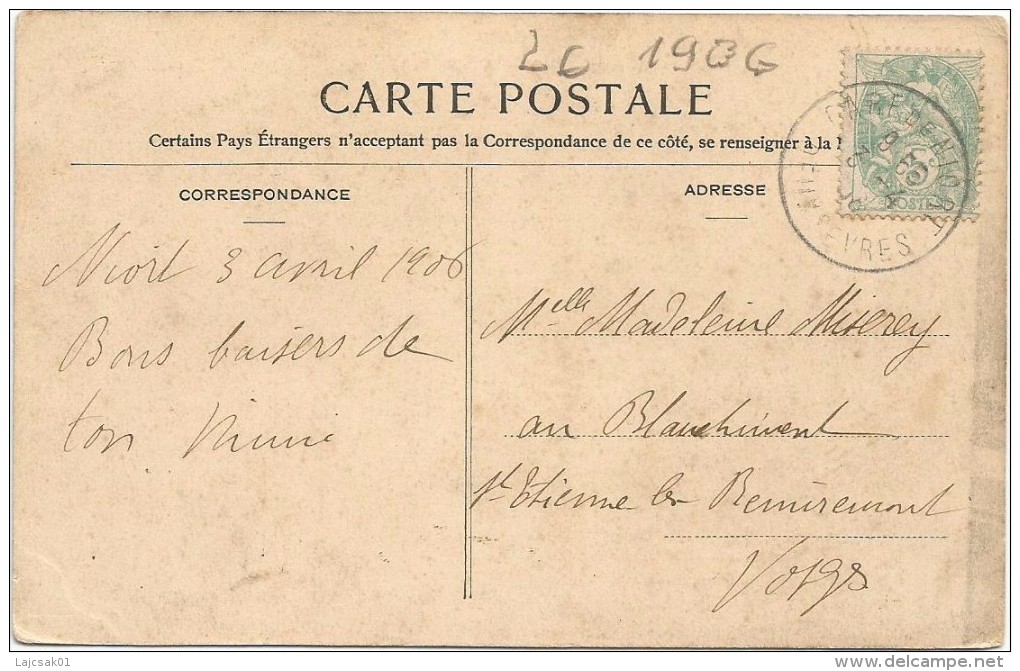 LC 1906
CARTE POSTALE
Certains Pays Étrangers n'acceptant pas la Correspondance de ce côté, se renseigner à la
CORRESPONDANCE
ADRESSE
GARE DE NIORT
SEVRES
POSTES
Niort 3 avril 1906
Bons baisers de
ton
Melle Madeleine Miserey
au Blanchiment
St Etienne les Remiremont
Vosges
Lajcsak01
delcampe.net